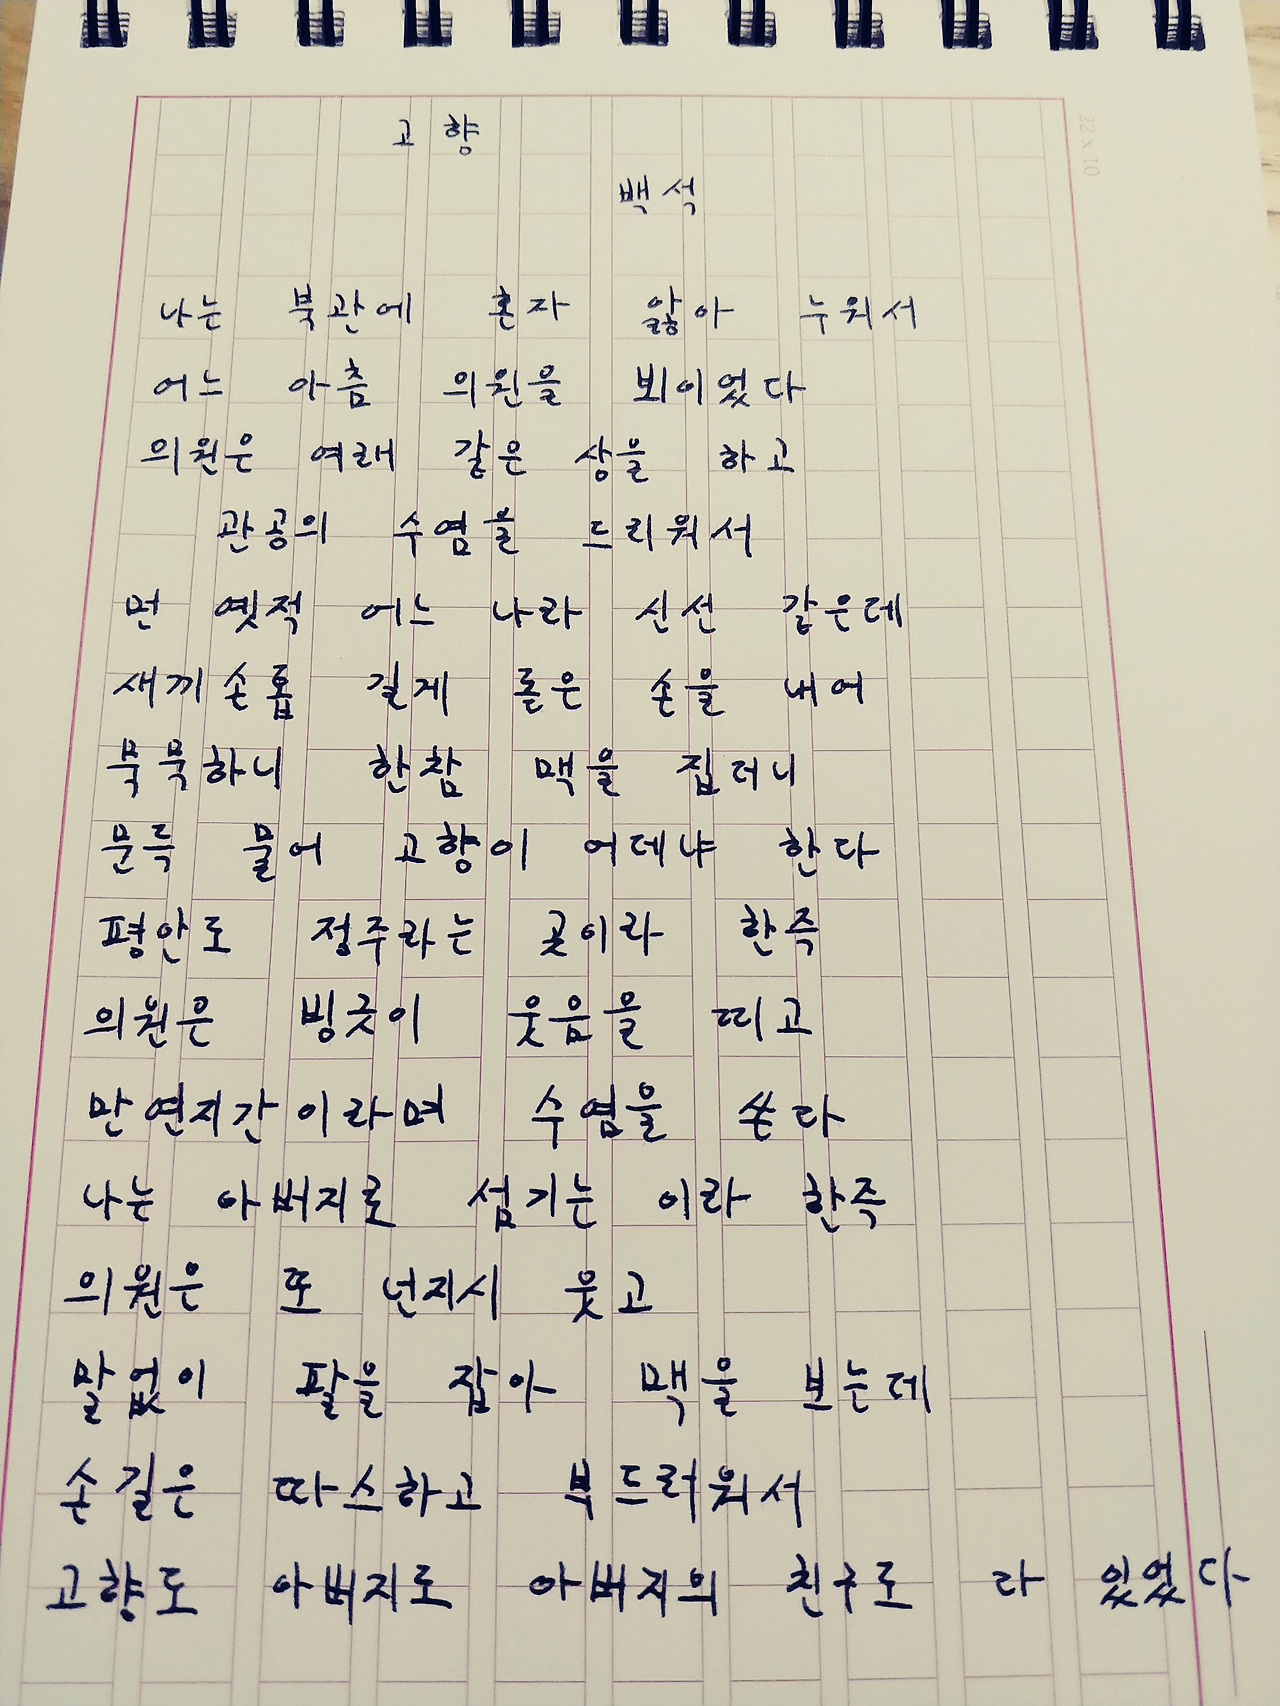 고향
백석
나는 북관에 혼자 앓아 누워서
어느 아츰 의원을 뵈이었다
의원은 여래 같은 상을 하고
관공의 수염을 드리워서
먼 옛적 어느 나라 신선 같은데
새끼손톱 길게 돋은 손을 내어
묵묵하니 한참 맥을 집더니
문득 물어 고향이 어데냐 한다
평안도 정주라는 곳이라 한즉
의원은 빙긋이 웃음을 띠고
만연지간이라며 수염을 쓴다
나는 아버지로 섬기는 이라 한즉
의원은 또 넌지시 웃고
말없이 팔을 잡아 맥을 보는데
손길은 따스하고 부드러워서
고향도 아버지로 아버지의 친구로 다 있었다
22 x 10